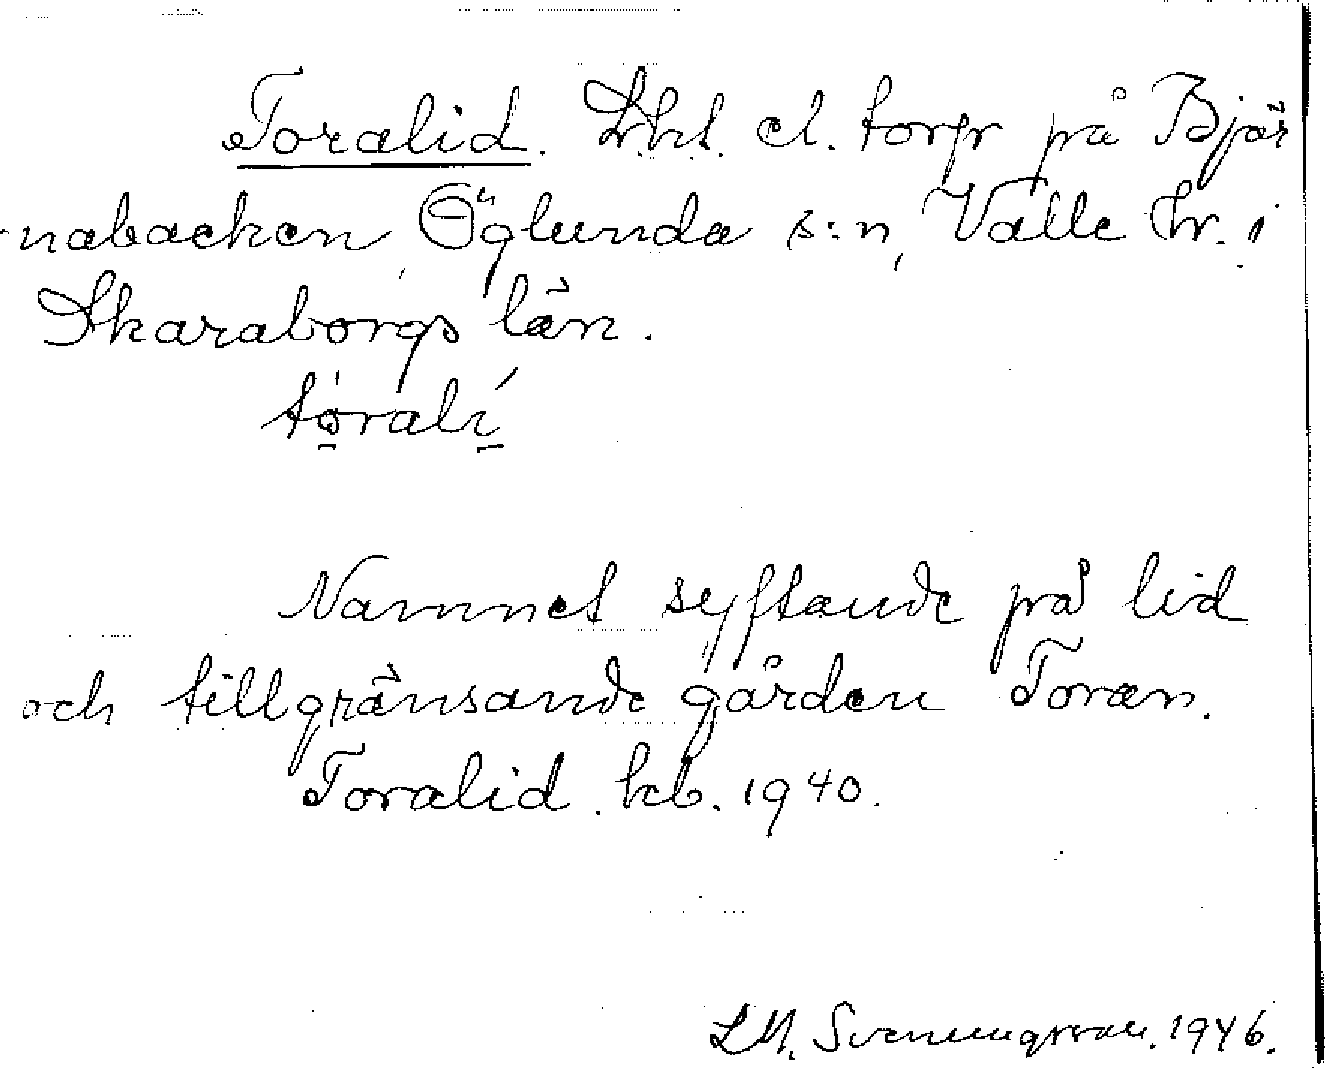 Toralid. Lht. el. torp på Bjär
nabacken, Öglunda s:n, Valle hr. i
Skaraborgs län.
tòralí
Namnet syftande på lid
och tillgränsande gården Toran.
Toralid. kb. 1940.
LM. Svenungsson. 1946.